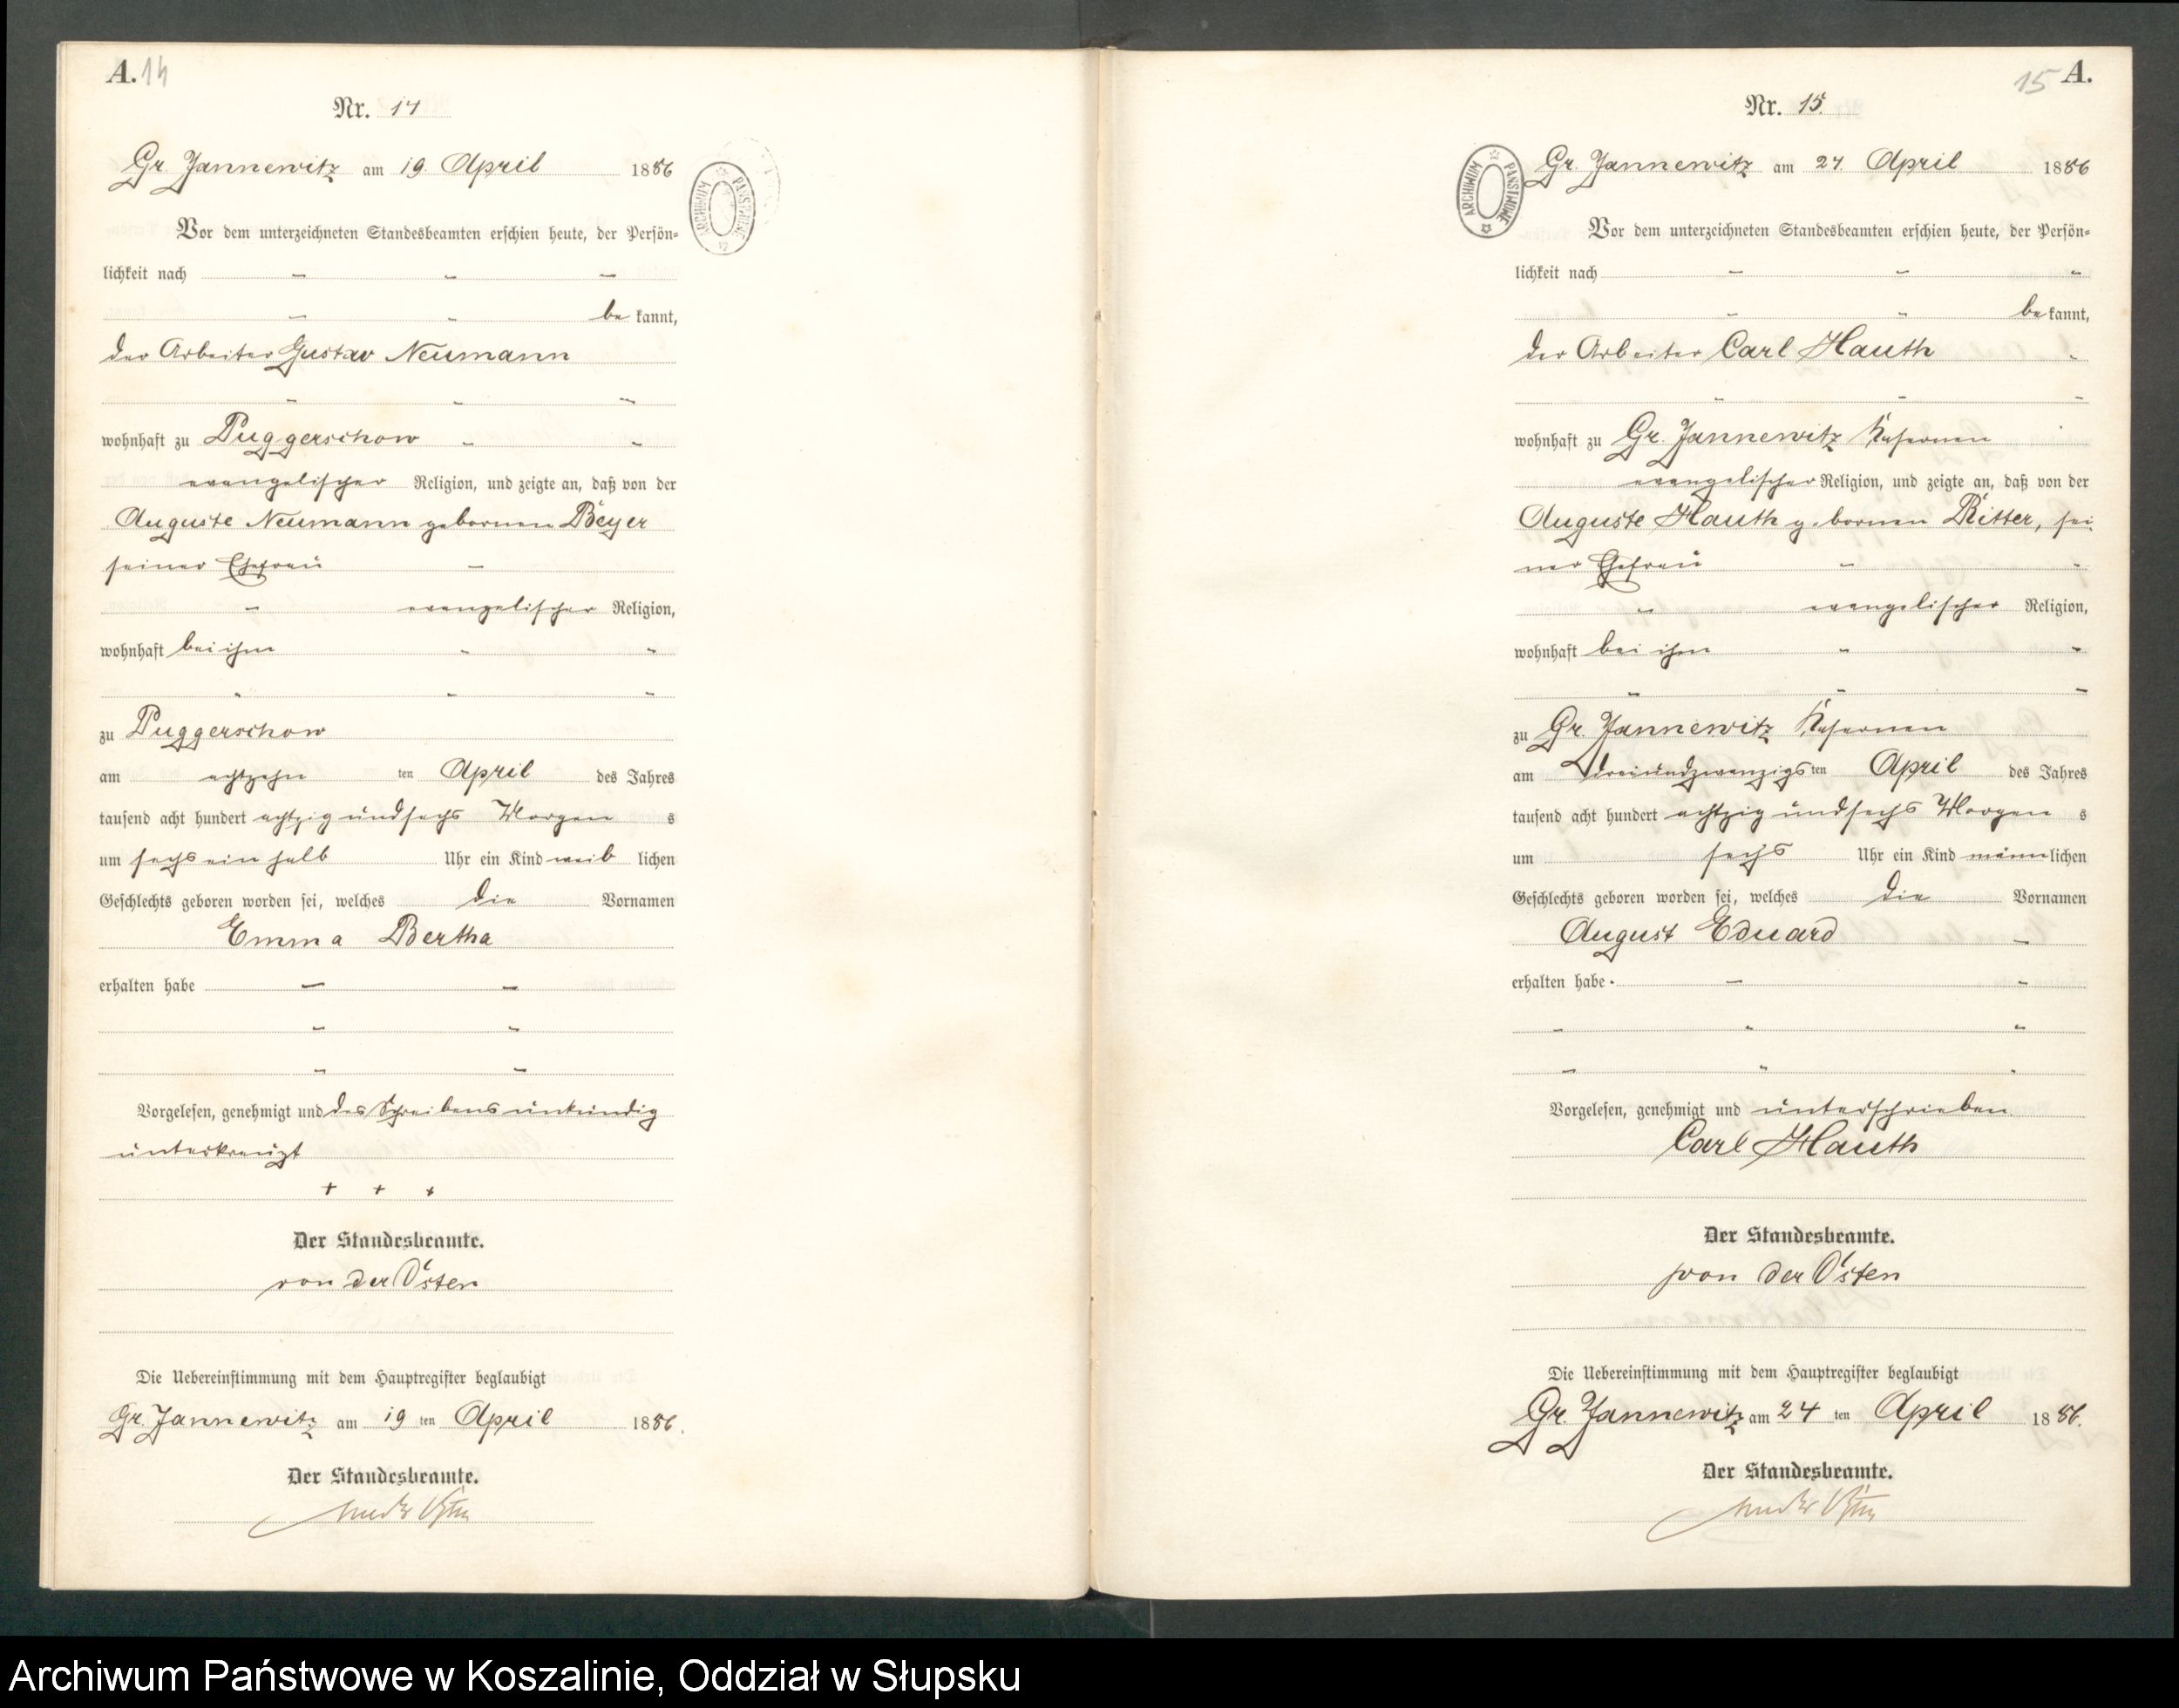 A. 14
Nr. 14
Gr. Jannewitz am 19. April 1886
Vor dem unterzeichneten Standesbeamten erschien heute, der Persön-
lichkeit nach
be kannt,
der Arbeiter Gustav Neumann
wohnhaft zu Puggerschow
evangelischer Religion, und zeigte an, daß von der
Auguste Neumann gebornen Beyer
seiner Ehefrau
evangelischer Religion,
wohnhaft bei ihm
zu Puggerschow
am achtzehn ten April des Jahres
tausend acht hundert achtzig und sechs Morgen s
um sechs ein halb Uhr ein Kind weib lichen
Geschlechts geboren worden sei, welches die Vornamen
Emma Bertha
erhalten habe
Vorgelesen, genehmigt und des Schreibens unkundig
unterkreuzt
+ + +
Der Standesbeamte.
von der Osten
Die Uebereinstimmung mit dem Hauptregister beglaubigt
Gr. Jannewitz am 19 ten April 1886.
Der Standesbeamte.
von der Osten
ARCHIWUM PAŃSTWOWE
15 A.
Nr. 15.
Gr. Jannewitz am 24. April 1886
Vor dem unterzeichneten Standesbeamten erschien heute, der Persön-
lichkeit nach
be kannt,
der Arbeiter Carl Hauth
wohnhaft zu Gr. Jannewitz Kasernen
evangelischer Religion, und zeigte an, daß von der
Auguste Hauth gebornen Ritter, sei-
ner Ehefrau
evangelischer Religion,
wohnhaft bei ihm
zu Gr. Jannewitz Kasernen
am dreiundzwanzigs ten April des Jahres
tausend acht hundert achtzig und sechs Morgen s
um sechs Uhr ein Kind männ lichen
Geschlechts geboren worden sei, welches die Vornamen
August Eduard
erhalten habe
Vorgelesen, genehmigt und unterschrieben.
Carl Hauth
Der Standesbeamte.
von der Osten
Die Uebereinstimmung mit dem Hauptregister beglaubigt
Gr. Jannewitz am 24 ten April 1886.
Der Standesbeamte.
von der Osten
ARCHIWUM PAŃSTWOWE
Archiwum Państwowe w Koszalinie, Oddział w Słupsku